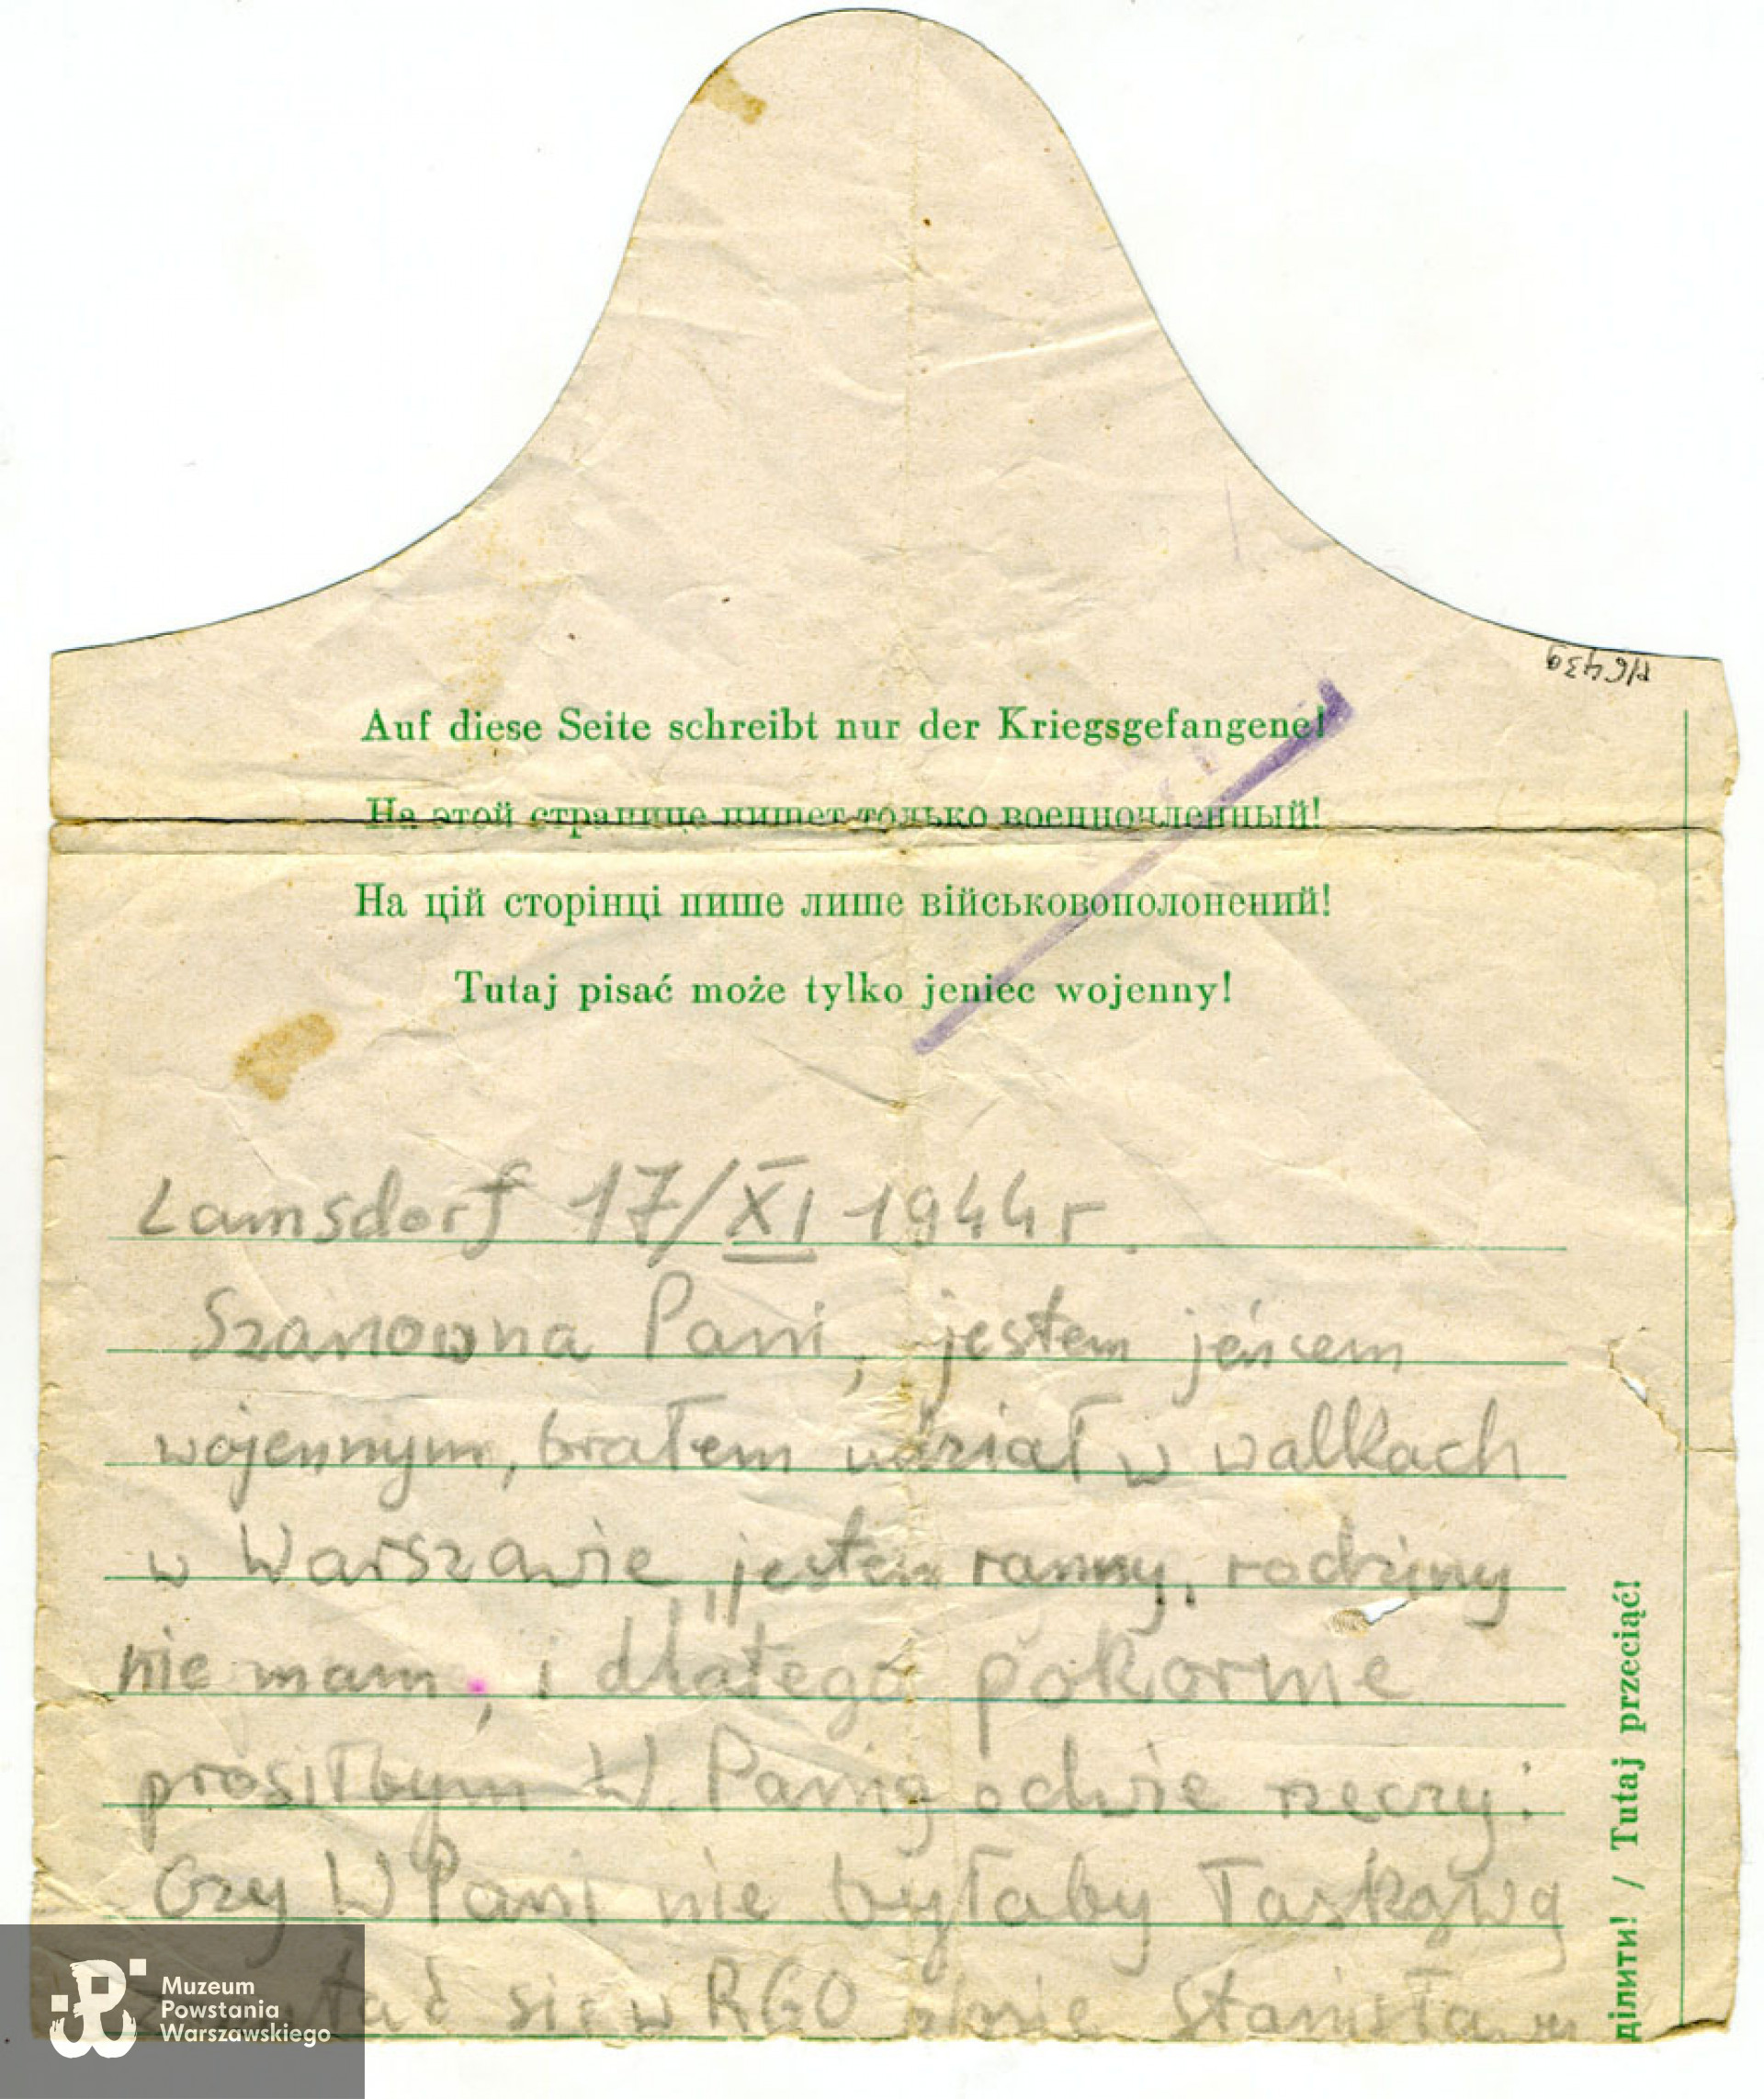 P/6439
Auf diese Seite schreibt nur der Kriegsgefangene!
На этой странице пишет только военнопленный!
На цій сторінці пише лише військовополонений!
Tutaj pisać może tylko jeniec wojenny!
Lamsdorf 17/XI 1944 r.
Szanowna Pani, jestem jeńcem
wojennym, brałem udział w walkach
w Warszawie, jestem ranny, rodziny
nie mam, i dlatego pokornie
prosiłbym W. Panią o dwie rzeczy:
Czy WPani nie byłaby łaskawą
się w RGO Stanisław
ділити! / Tutaj przeciąć!
Muzeum
Powstania
Warszawskiego